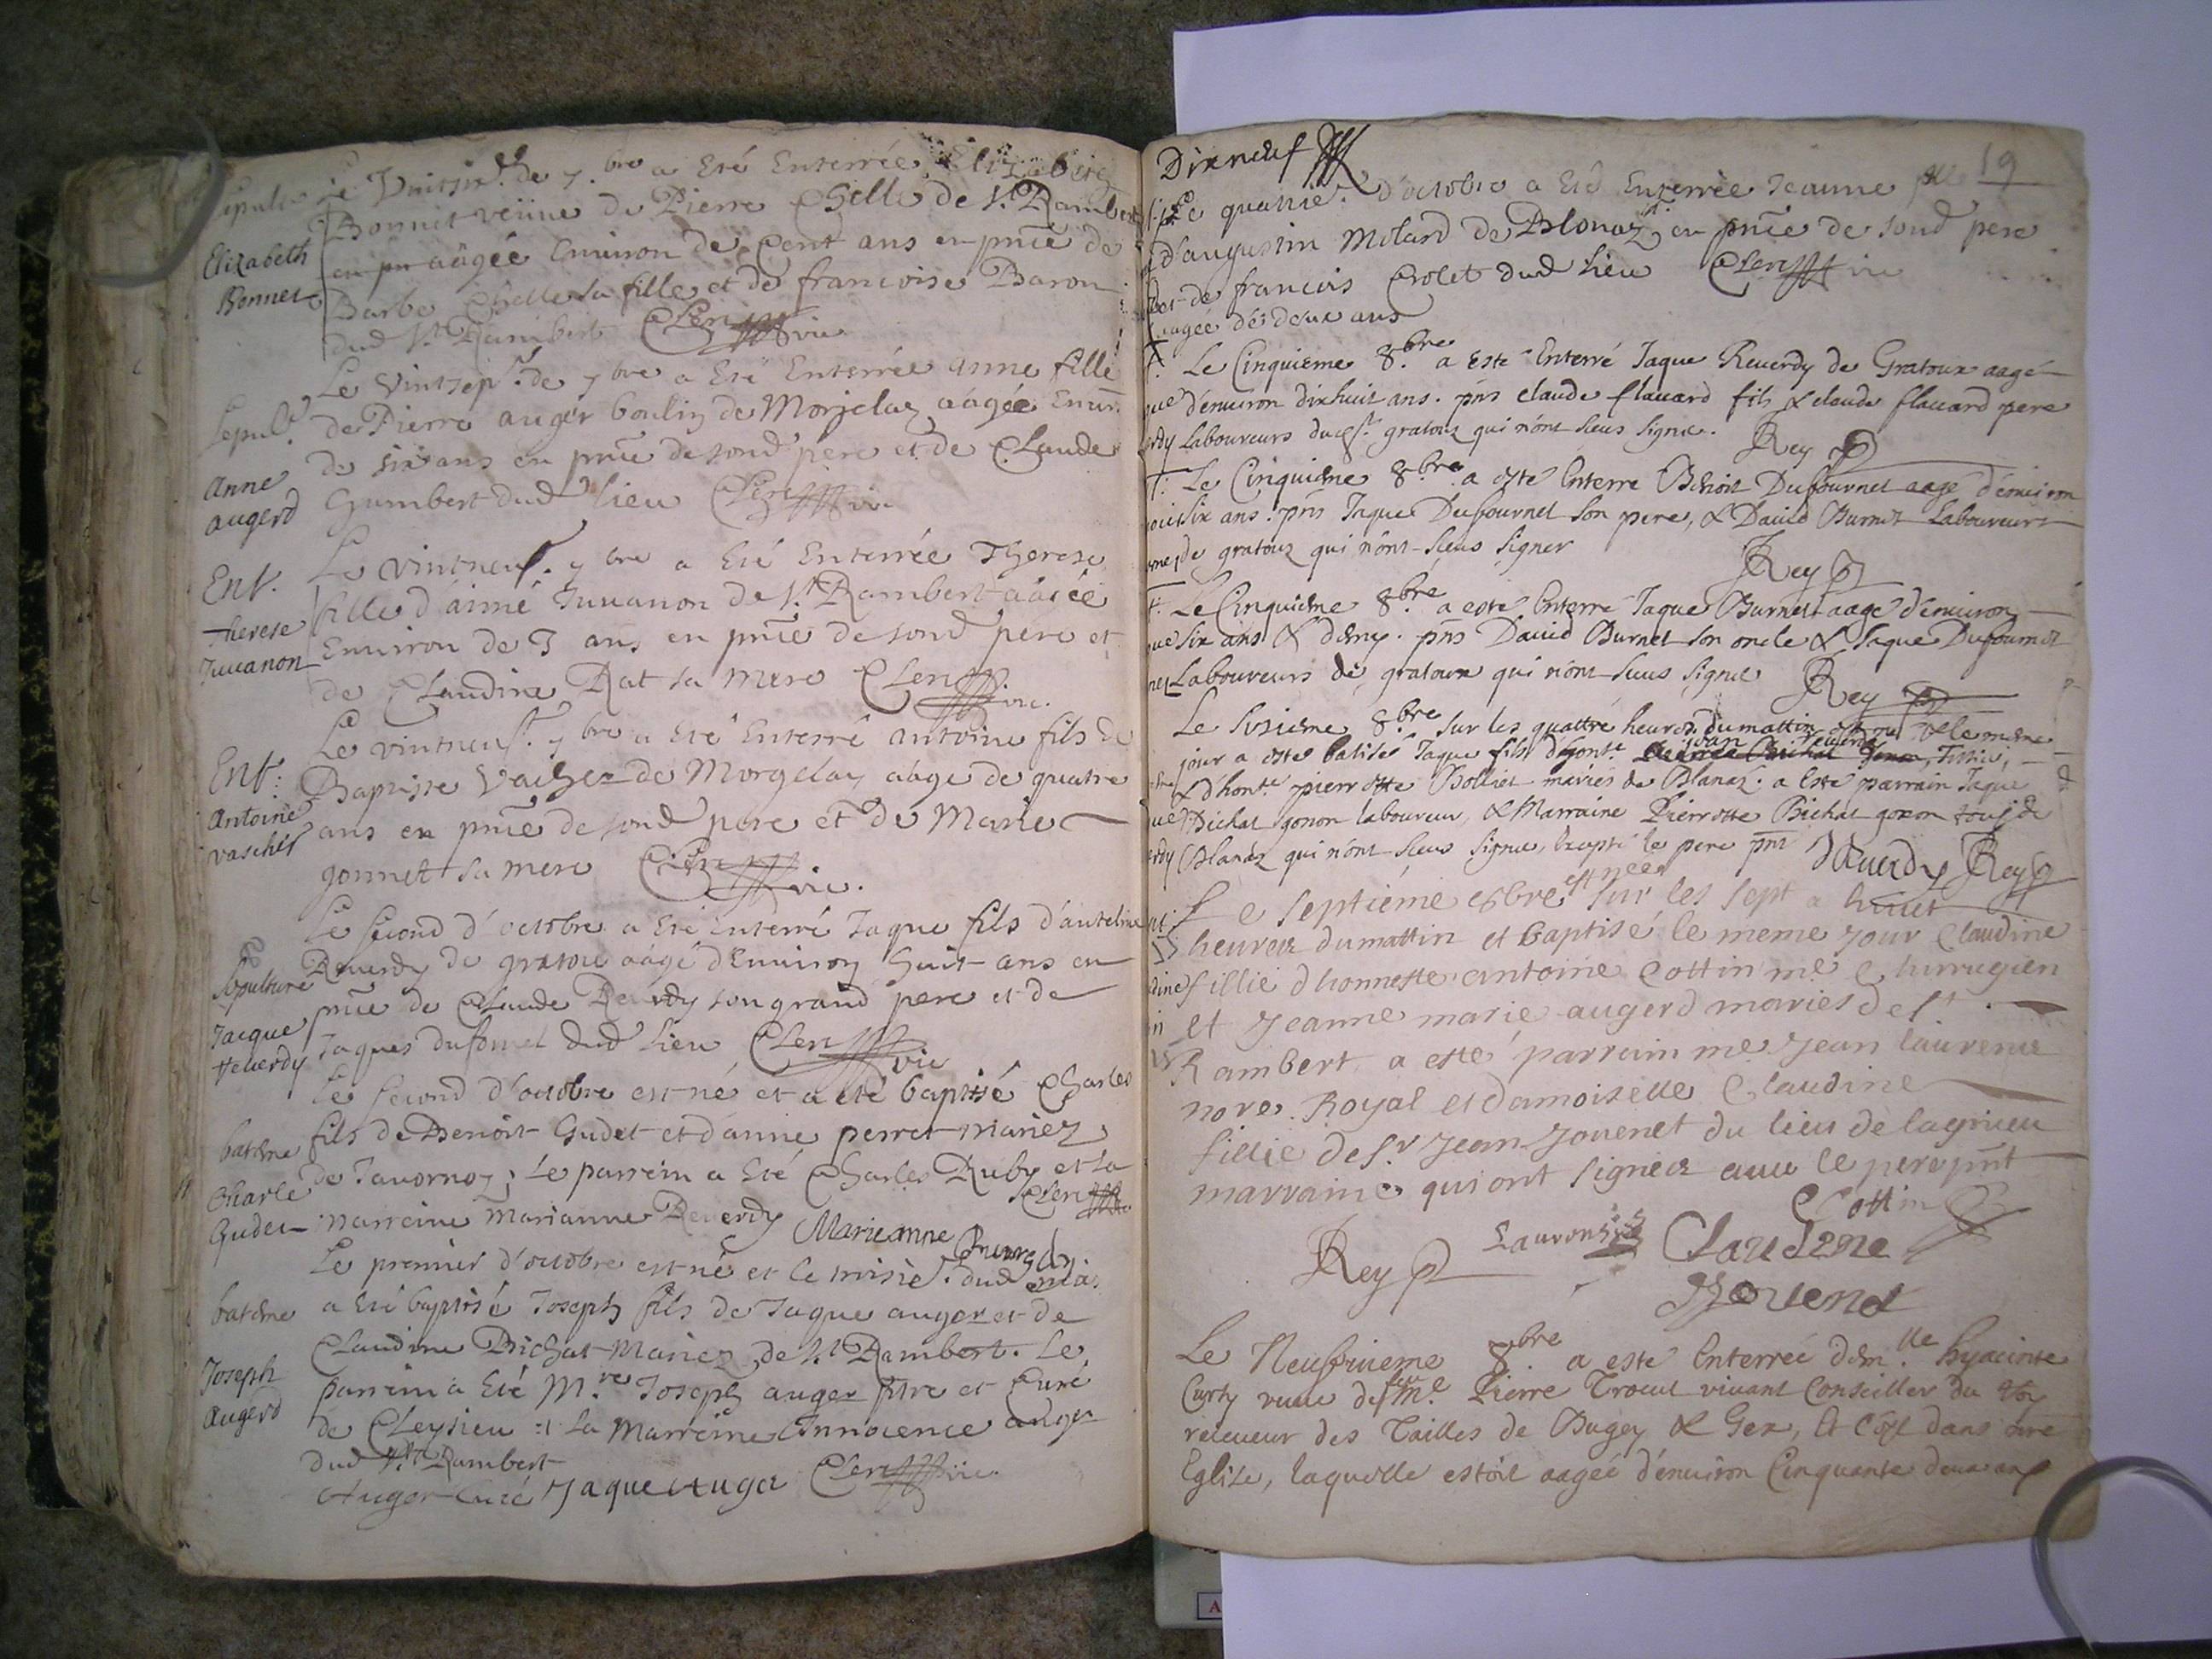 Sepulture Le Vintsix.e de 7.bre a Eté Enterrée Elizabeth
Bonnet veüue de Pierre Chelle de St Rambert
Elizabeth Bonnet
en pn aâgée Enuiron de Cent ans en pnce de
Barbe Chelle sa fille et de francoise Baron
dud St Rambert Clerc vic
Le Vintsept.e de 7bre a Eté Enterrée anne fille
Sepult.
de Pierre auger boulin de Morjelaz aâgée Enuir.
de six ans en pnce de sond pere et de Claude
Anne augerd
Gumbert dud lieu Clerc vic
Le vintneuf.e 7bre a Eté Enterrée Therese
Ent. Therese Juuanon
fille d'aimé Juuanon de St Rambert aâgée
Enuiron de 3 ans en pnce de sond pere et
de Claudine Rat sa mere Clerc vic.
Le vintneuf.e 7bre a Eté Enterré antoine fils de
Ent: Antoine vascher
Baptiste Vacher de Morgelay aâgé de quatre
ans en pnce de sond pere et de Marie
gonnet sa mere Clerc vic.
Le second d'octobre a Eté Enterré Jaque fils d'antelme
Sepulture Jacque Reuerdy
Reuerdy de gratoux aâgé d'Enuiron huit ans en
pnce de Claude Reuerdy son grand pere et de
Jaques dufornel dud lieu Clerc vic
Le second d'octobre est né et a eté baptisé Charles
batême Charle Gudet
fils de Benoit Gudet et d'anne perret mariez
de Jauornoz; Le parrein a Eté Charles Ruby et la
marreine Marianne Reuerdy Clerc vic
Marieanne Reuerdy
Le premier d'octobre est né et le troisie.e dud mois
batême Joseph Augerd
a Eté baptisé Joseph fils de Jaque auger et de
Claudine Bichat Mariez de St Rambert. Le
parrein a Eté M.re Joseph auger ptre et Curé
de Cleyzieu et la Marreine Innocence auger
dud St Rambert
Auger Curé Jaque Auger Clerc vic.
Dixneuf
19
Le quatrie.e d'octobre a Eté Enterrée Jeanne fille
d'augustin Molard de Blonaz en pnce de sond pere
et de francois Crolet dud lieu Clerc vic
aagée de deux ans
Le Cinquieme 8.bre a esté Enterré Jaque Reuerdy de Gratoux aagé
d'enuiron dixhuit ans. pns claude flauard fils & claude flauard pere
Laboureurs dud gratoux qui n'ont sceus signer. Rey
Le Cinquieme 8.bre a esté Enterré Benoit Dufournel aagé d'enuiron
six ans. pns Jaque Dufournel son pere, & Dauid Burnet Laboureurs
de gratoux qui n'ont sceus signer
Rey
Le Cinquieme 8.bre a esté Enterré Jaque Burnet aagé d'enuiron
six ans & demy. pns Dauid Burnet son oncle & Jaque Dufournel
Laboureurs de gratoux qui n'ont sceus signer Rey
Le sixieme 8.bre sur les quattre heures du mattin est né & le mesme
jour a esté batisé Jaque fils d'hont.e jean Reuerdy, Tissier,
& d'hont.e pierrotte Bolliet mariés de Blanaz. a esté parrain Jaque
Bichat gonon laboureur, & Marraine Pierrotte Bichat gonon tous de
Blanaz qui n'ont sceus signer, excepté le pere pnt Reuerdy Rey
Le septiéme 8bre est née sur les sept a huict
heures du mattin et baptisé le meme jour Claudine
fillie d honneste antoine Cottin me Chirrugien
et Jeanne marie augerd mariés de St
Rambert a esté parrain me Jean laurenci
nore. Royal et damoiselle Claudine
fillie de Sr Jean Jouenet du lieu de lagnieu
marraine qui ont signéz auec le pere pnt
Cottin
Laurensis Claudene
Rey
Jouenet
Le Neufvieme 8.bre a esté Enterrée dem.lle hyacinte
Curty veuue de feu Me Pierre Trocut viuant Conseiller du Roy
receueur des Tailles de Bugey & Gex, Et Ce dans nre
Eglise, laquelle estoit aagée d'enuiron Cinquante deux ans